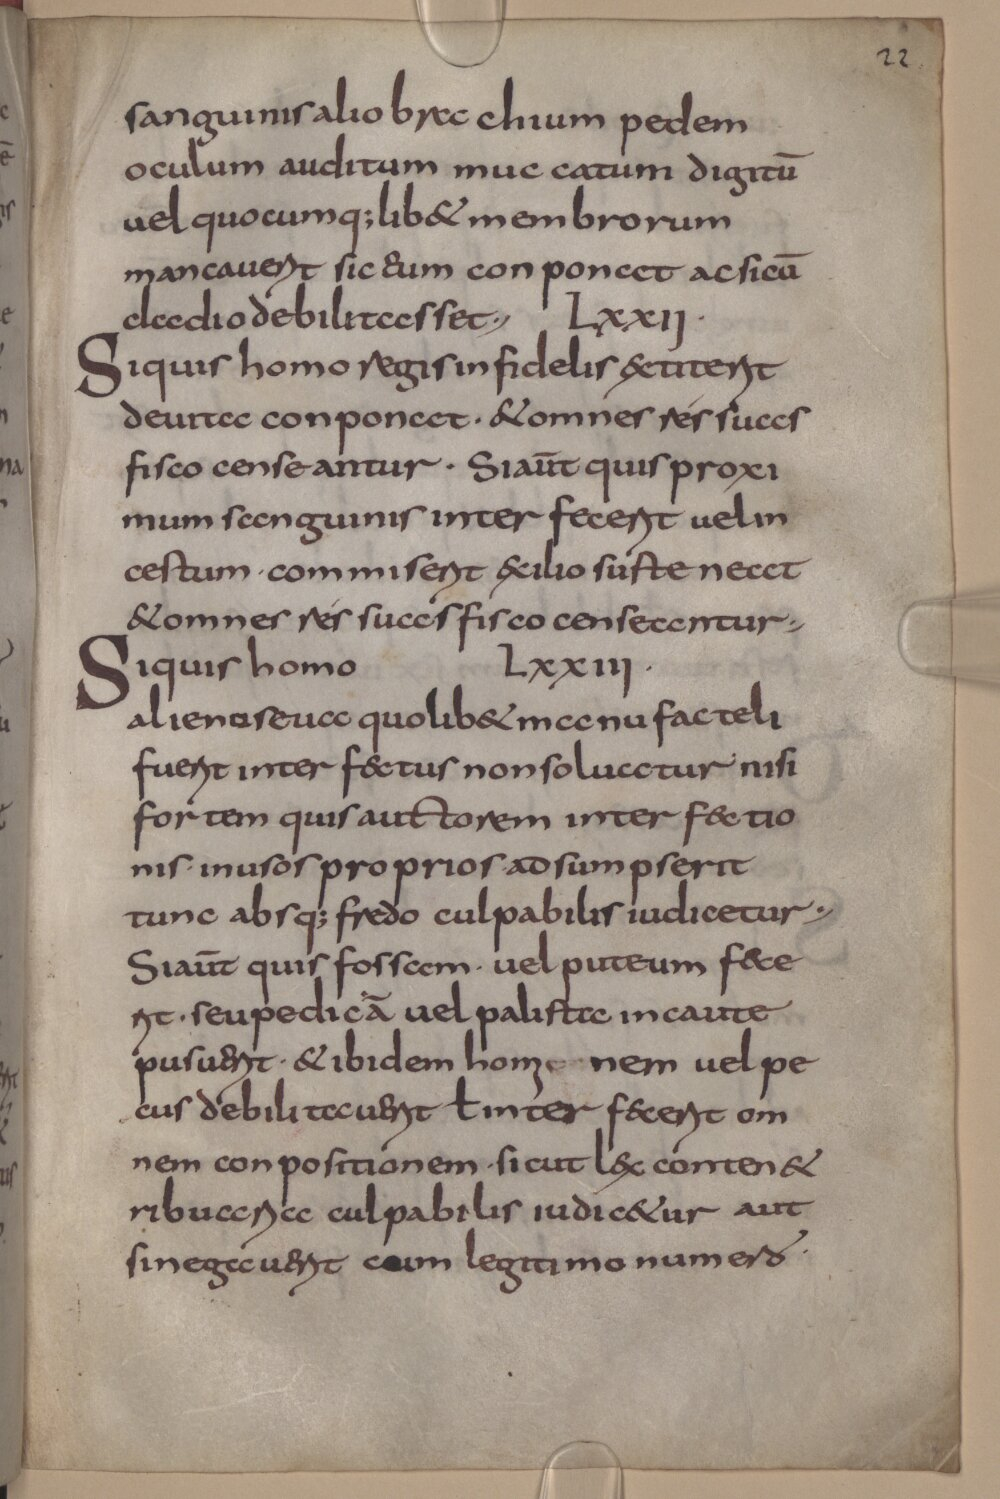 22
sanguinis alio bracchium pedem
oculum auditum muccatum digitū
uel quocumq; lib& membrorum
mancauerit sic eum conponat ac sicū
claudio debilitasset·, LXXII·
Siquis homo regis infidelis extiterit
deuita conponat· & omnes res suas
fisco censeantur· Siaūt quis proxi
mum sanguinis interfecerit uel in
cestum· commiserit exilio susteneat
& omnes res suas fisco censeantur·,
Siquis homo LXXIII·
alienus eua quolib& manufacteli
fuerit interf&ctus non soluatur nisi
fortem quis auctorem interf&ctio
nis· in usos proprios adsumpserit
tunc absq; fredo culpabilis iudicetur·,
Siaūt quis fossam· uel puteum f&ce
rit· seu pedicā uel palista incaute
pusuerit· & ibidem hominem uel pe
cus debilitauerit ł interf&cerit om
nem conpositionem· sicut lex conten&
ribuaria culpabilis iudic&ur aut
si negauerit cum legitimo numero·